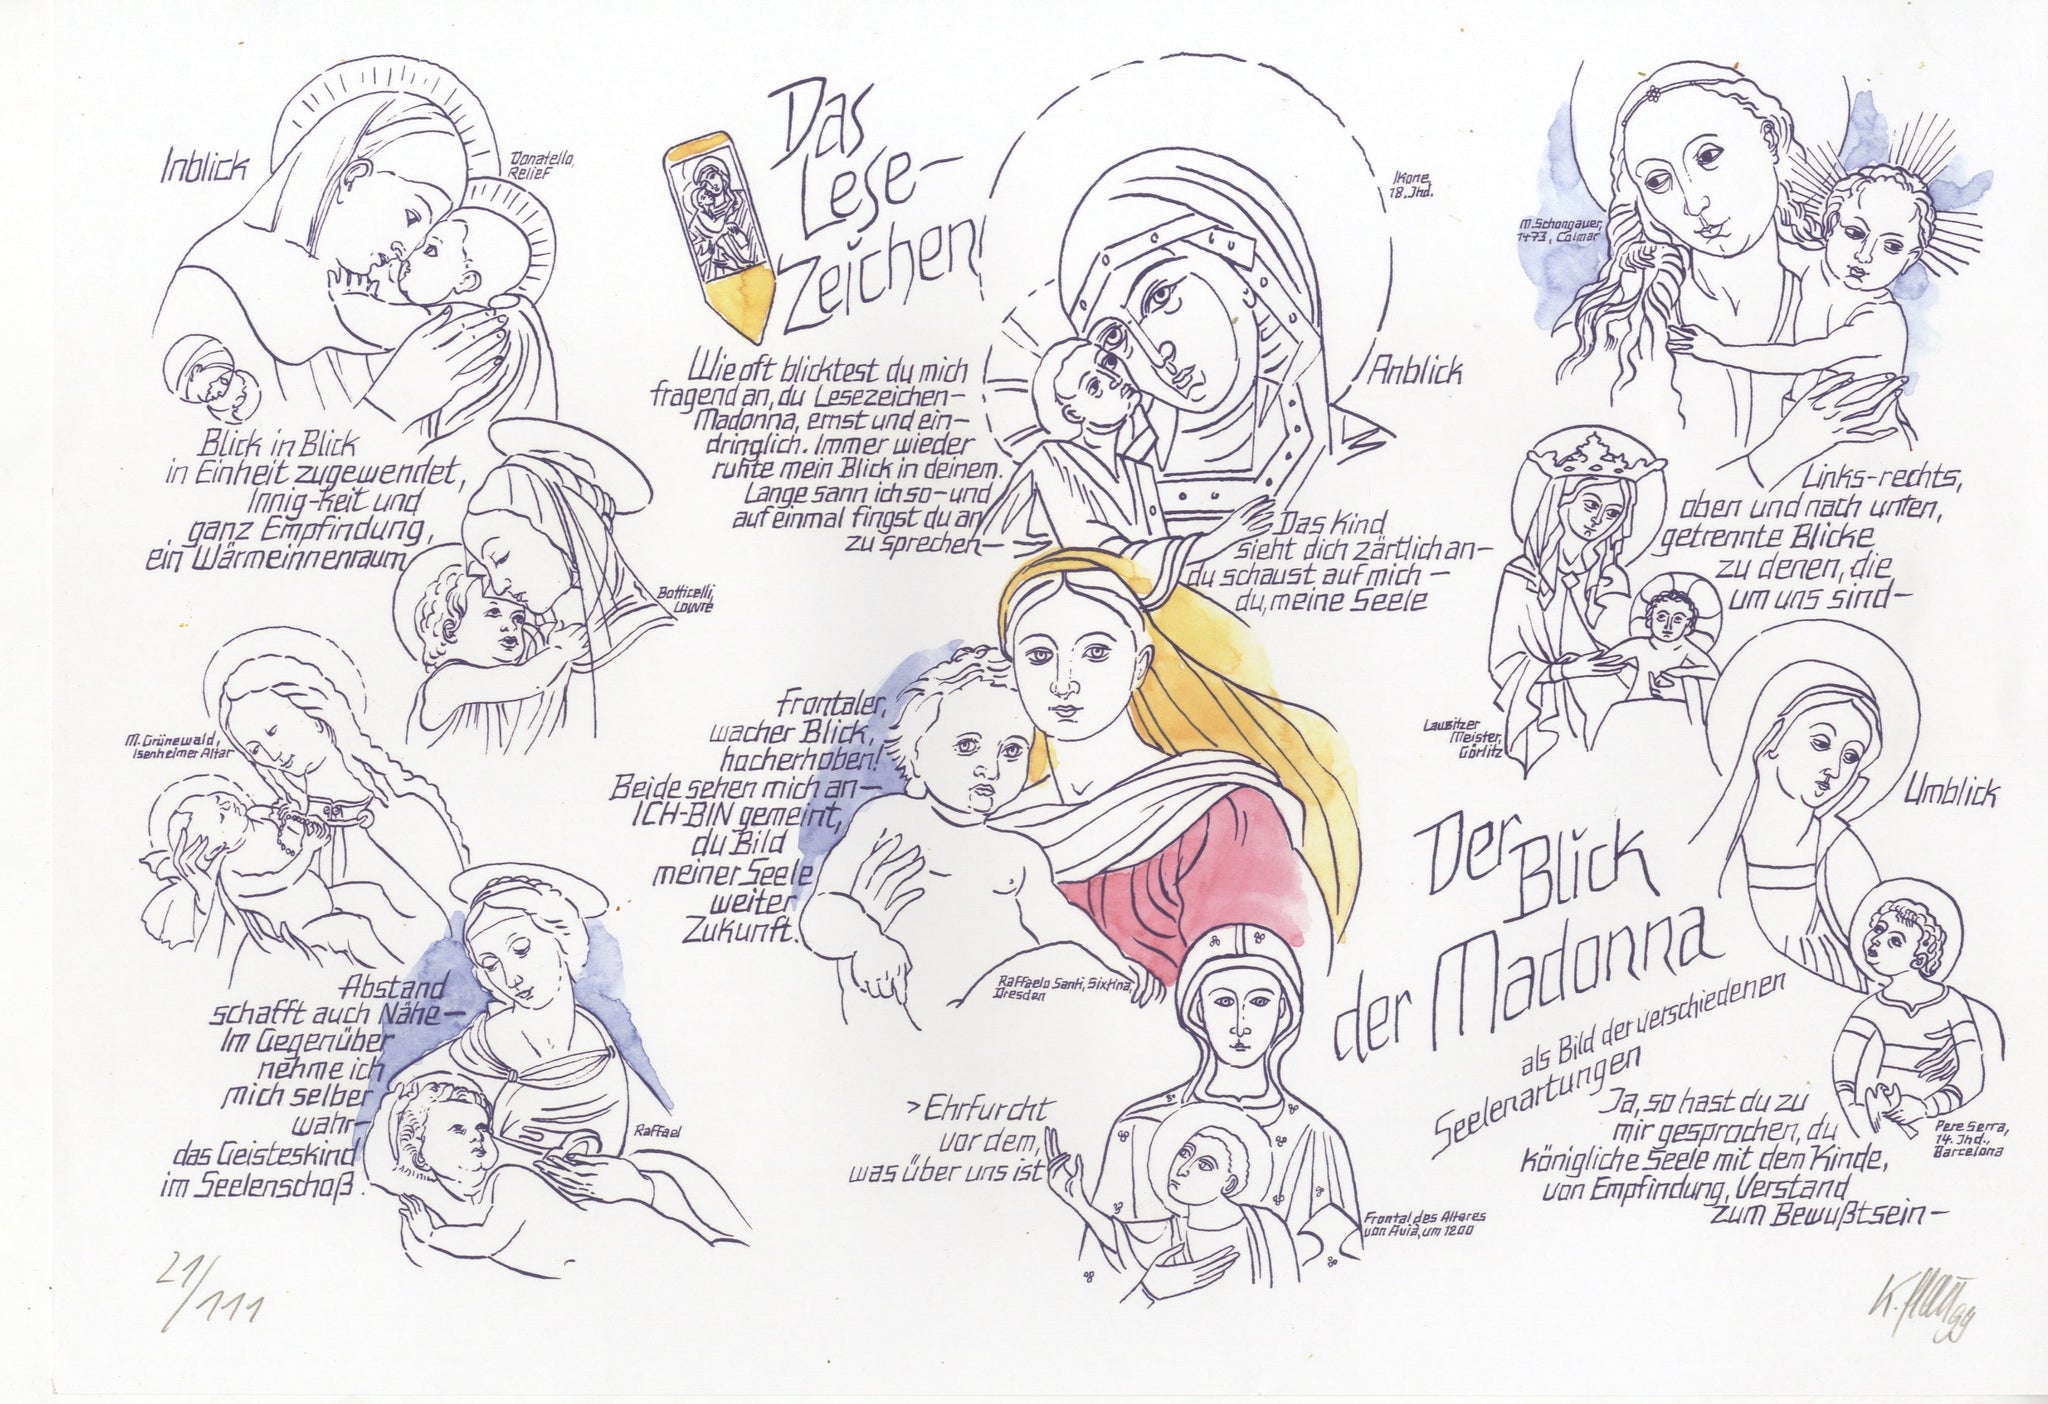 Inblick
Donatello,
Relief
Blick in Blick
in Einheit zugewendet,
Innig-keit und
ganz Empfindung,
ein Wärmeinnenraum
Botticelli,
Louvre
M. Grünewald,
Isenheimer Altar
Abstand
schafft auch Nähe—
Im Gegenüber
nehme ich
mich selber
wahr—
das Geisteskind
im Seelenschoß.
Raffael
21/111
Das
Lese-
Zeichen
Wie oft blicktest du mich
fragend an, du Lesezeichen—
Madonna, ernst und ein—
dringlich. Immer wieder
ruhte mein Blick in deinem.
Lange sann ich so—und
auf einmal fingst du an
zu sprechen—
Ikone
18. Jhd.
Anblick
Das Kind
sieht dich zärtlich an—
du schaust auf mich—
du, meine Seele
Frontaler,
wacher Blick,
hocherhoben!
Beide sehen mich an—
ICH-BIN gemeint,
du Bild
meiner Seele
weiter
Zukunft.
Raffaelo Santi, Sixtina,
Dresden
>Ehrfurcht
vor dem,
was über uns ist
Frontal des Altares
von Avià, um 1200
M. Schongauer,
1473, Colmar
Links-rechts,
oben und nach unten,
getrennte Blicke
zu denen, die
um uns sind—
Lausitzer
Meister,
Görlitz
Umblick
Der
Blick
der Madonna
als Bild der verschiedenen
Seelenartungen
Pere Serra,
14. Jhd.,
Barcelona
Ja, so hast du zu
mir gesprochen, du
königliche Seele mit dem Kinde,
von Empfindung, Verstand
zum Bewußtsein—